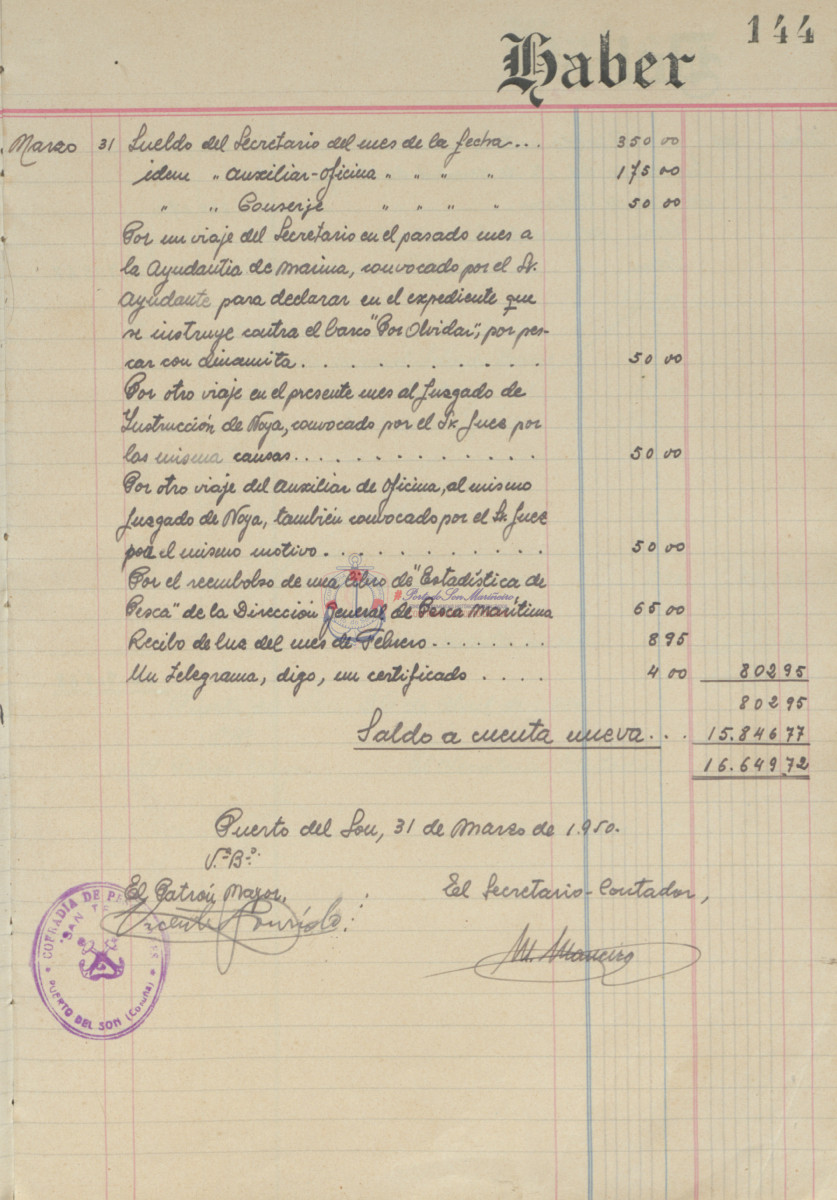 144
Haber
Marzo 31 Sueldo del Secretario del mes de la fecha... 350 00
idem " Auxiliar-Oficina " " " " 175 00
" " Conserje " " " " 50 00
Por un viaje del Secretario en el pasado mes a
la Ayudantia de Marina, convocado por el Sr.
Ayudante para declarar en el expediente que
se instruye contra el barco "Por Olvidar", por pes-
car con dinamita. . . . . . . . . . . 50 00
Por otro viaje en el presente mes al Juzgado de
Instrucción de Noya, convocado por el Sr. Juez por
las misma causas. . . . . . . . . . . 50 00
Por otro viaje del Auxiliar de Oficina, al mismo
Juzgado de Noya, también convocado por el Sr. Juez
por el mismo motivo. . . . . . . . . . 50 00
Por el reembolso de una libro de "Estadística de
Pesca" de la Dirección General de Pesca Marítima 65 00
#PortodoSon Mariñeiro
Recibo de luz del mes de Febrero. . . . . . . . 8 95
Un telegrama, digo, un certificado . . . . 4 00 802 95
802 95
Saldo a cuenta nueva... 15.846 77
16.649 72
Puerto del Son, 31 de Marzo de 1.950.
V.º B.º:
El Patrón Mayor. El Secretario-Contador,
Vicente
M. Maneiro
COFRADIA DE
SAN TE
PUERTO DEL SON (Coruña)